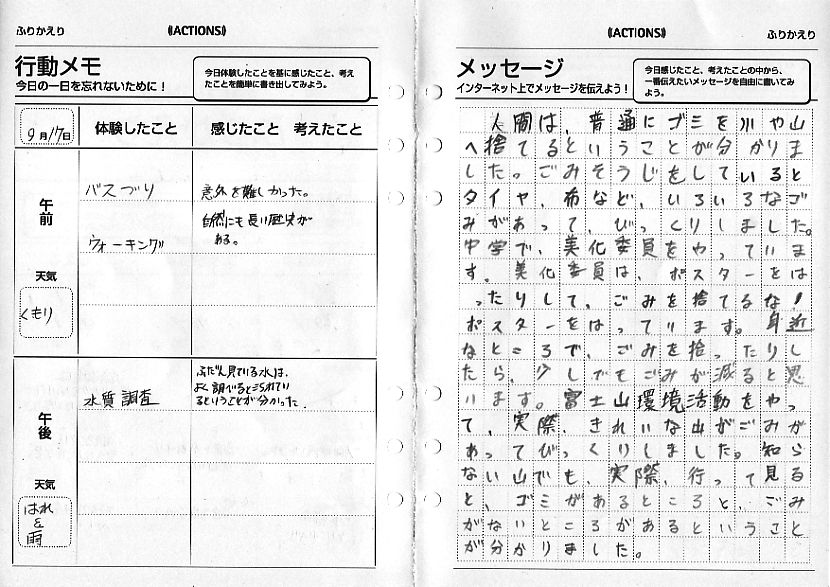 ふりかえり
《ACTIONS》
行動メモ
今日の一日を忘れないために！
今日体験したことを基に感じたこと、考え
たことを簡単に書き出してみよう。
9月17日
体験したこと
感じたこと 考えたこと
午前
天気
くもり
バスづり
意外を難しかった。
ウォーキング
自然にも長い歴史が
ある。
午後
天気
はれ
&
雨
水質調査
ふだん見ている水は、
よく調べると
るということが分かった
《ACTIONS》
ふりかえり
メッセージ
インターネット上でメッセージを伝えよう！
今日感じたこと、考えたことの中から、
一番伝えたいメッセージを自由に書いてみ
よう。
人間は、普通にゴミを川や山
へ捨てるということが分かりま
した。ごみそうじをしていると
タイヤ、布など、いろいろなゴ
みがあって、びっくりしました。
中学で、美化委員をやっていま
す。美化委員は、ポスターをは
ったりして、ごみを捨てるな！
ポスターをはっています。身近
なところで、ごみを拾ったりし
たら、少しでもごみが減ると思
います。富士山環境活動をやっ
て、実際、きれいな山がごみが
あってびっくりしました。知ら
ない山でも、実際、行って見る
と、ゴミがあるところと、ごみ
がないところがあるということ
が分かりました。